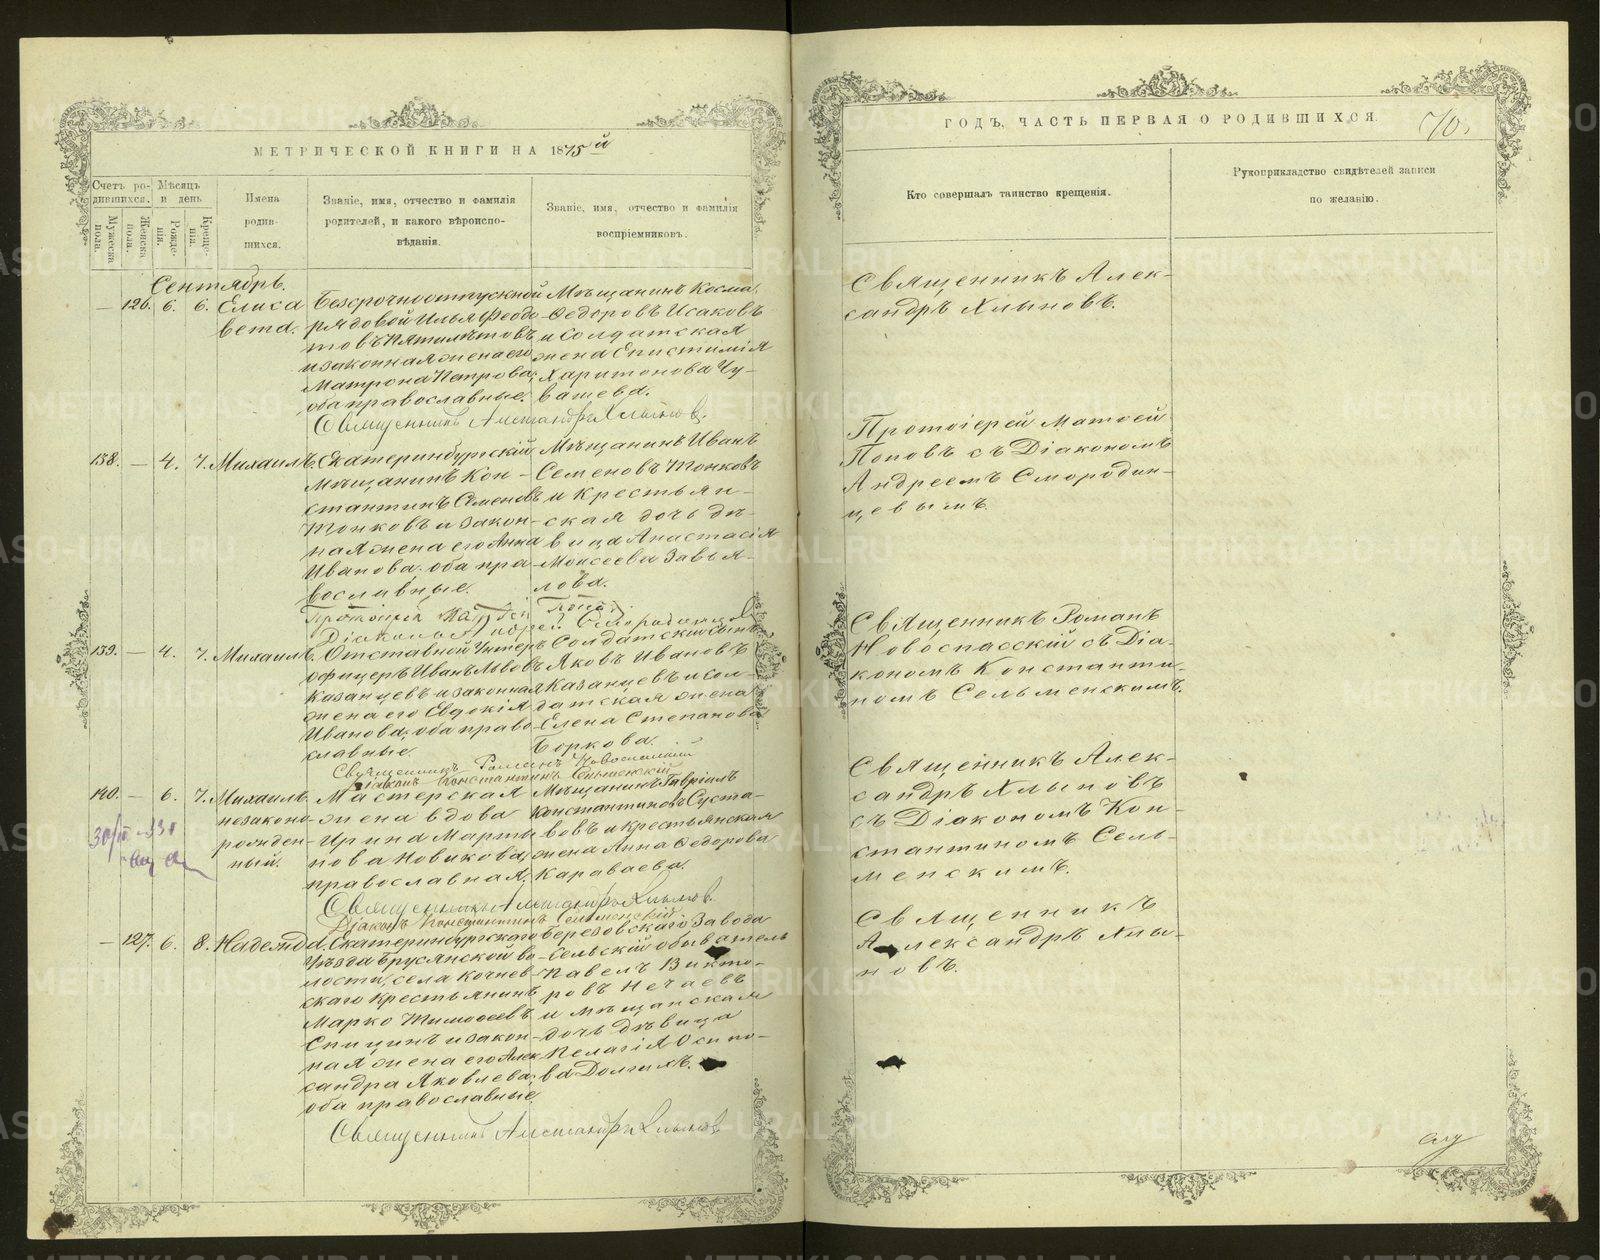 МЕТРИЧЕСКОЙ КНИГИ НА 1875й
Счетъ ро-
дившихся.
Мѣсяцъ
и день
Имена
родив-
шихся.
Званіе, имя, отчество и фамилія
родителей, и какого вѣроиспо-
вѣданія.
Званіе, имя, отчество и фамилія
воспріемниковъ.
Мужеска
пола.
Женска
пола.
Рожде-
нія.
Креще-
нія.
Сентябрь.
— 126. 6. 6. Елиса
вета.
Безсрочноотпускной
рядовой Илья Феодо-
товъ Пятилѣтовъ
и законная жена его
Матрона Петрова;
оба православные.
Мѣщанинъ Косма
Ѳедоровъ Исаковъ
и Солдатская
жена Епистимія
Харитонова Чу-
вашева.
Священникъ Александръ Хлыновъ.
138. — 4. 7. Михаилъ.
Екатеринбургскій
мѣщанинъ Кон-
стантинъ Семеновъ
Тонковъ и закон-
ная жена его Анна
Иванова. оба пра-
вославные.
Мѣщанинъ Иванъ
Семеновъ Тонковъ
и крестьян-
ская дочь дѣ-
вица Анастасія
Моисеева Завья-
лова.
Протоіерей Матѳей Поповъ
Діаконъ Андрей Смородинцевъ
139. — 4. 7. Михаилъ.
Отставной Унтеръ
офицеръ Иванъ Львовъ
Казанцевъ и законная
жена его Евдокія
Иванова; оба право-
славные.
Солдатскій сынъ
Яковъ Ивановъ
Казанцевъ и сол-
датская жена
Елена Степанова
Боркова.
Священникъ Романъ Новоспасскій
Діаконъ Константинъ Сельменскій
140. — 6. 7. Михаилъ
незаконо-
рожден-
ный.
Мастерская
жена вдова
Ирина Марты
нова Новикова,
православная.
Мѣщанинъ Гавріилъ
Константиновъ Суста-
вовъ и крестьянская
жена Анна Ѳедорова
Караваева.
Священникъ Александръ Хлыновъ.
Діаконъ Константинъ Сельменскій
— 127. 6. 8. Надежда.
Екатеринбургскаго
Уѣзда Брусянской во-
лости, села Кочнев-
скаго крестьянинъ
Марко Тимоѳеевъ
Спицинъ и закон-
ная жена его Алек
сандра Яковлева;
оба православные.
Березовскаго Завода
Сельскій обыватель
Павелъ Викто-
ровъ Нечаевъ
и мѣщанская
дочь дѣвица
Пелагія Осипо-
ва Долгихъ.
Священникъ Александръ Хлыновъ
ГОДЪ, ЧАСТЬ ПЕРВАЯ О РОДИВШИХСЯ.
70.
Кто совершалъ таинство крещенія.
Рукоприкладство свидѣтелей записи
по желанію.
Священникъ Алек-
сандръ Хлыновъ.
Протоіерей Матѳей
Поповъ съ Діакономъ
Андреемъ Смородин-
цевымъ.
Священникъ Романъ
Новоспасскій съ Діа-
кономъ Константи-
номъ Сельменскимъ.
Священникъ Алек-
сандръ Хлыновъ
съ Діакономъ Кон-
стантиномъ Сель-
менскимъ.
Священникъ
Александръ Хлы-
новъ.
METRIKI.GASO-URAL.RU